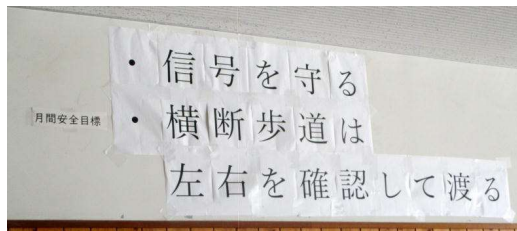 月間安全目標
・信号を守る
・横断歩道は
左右を確認して渡る